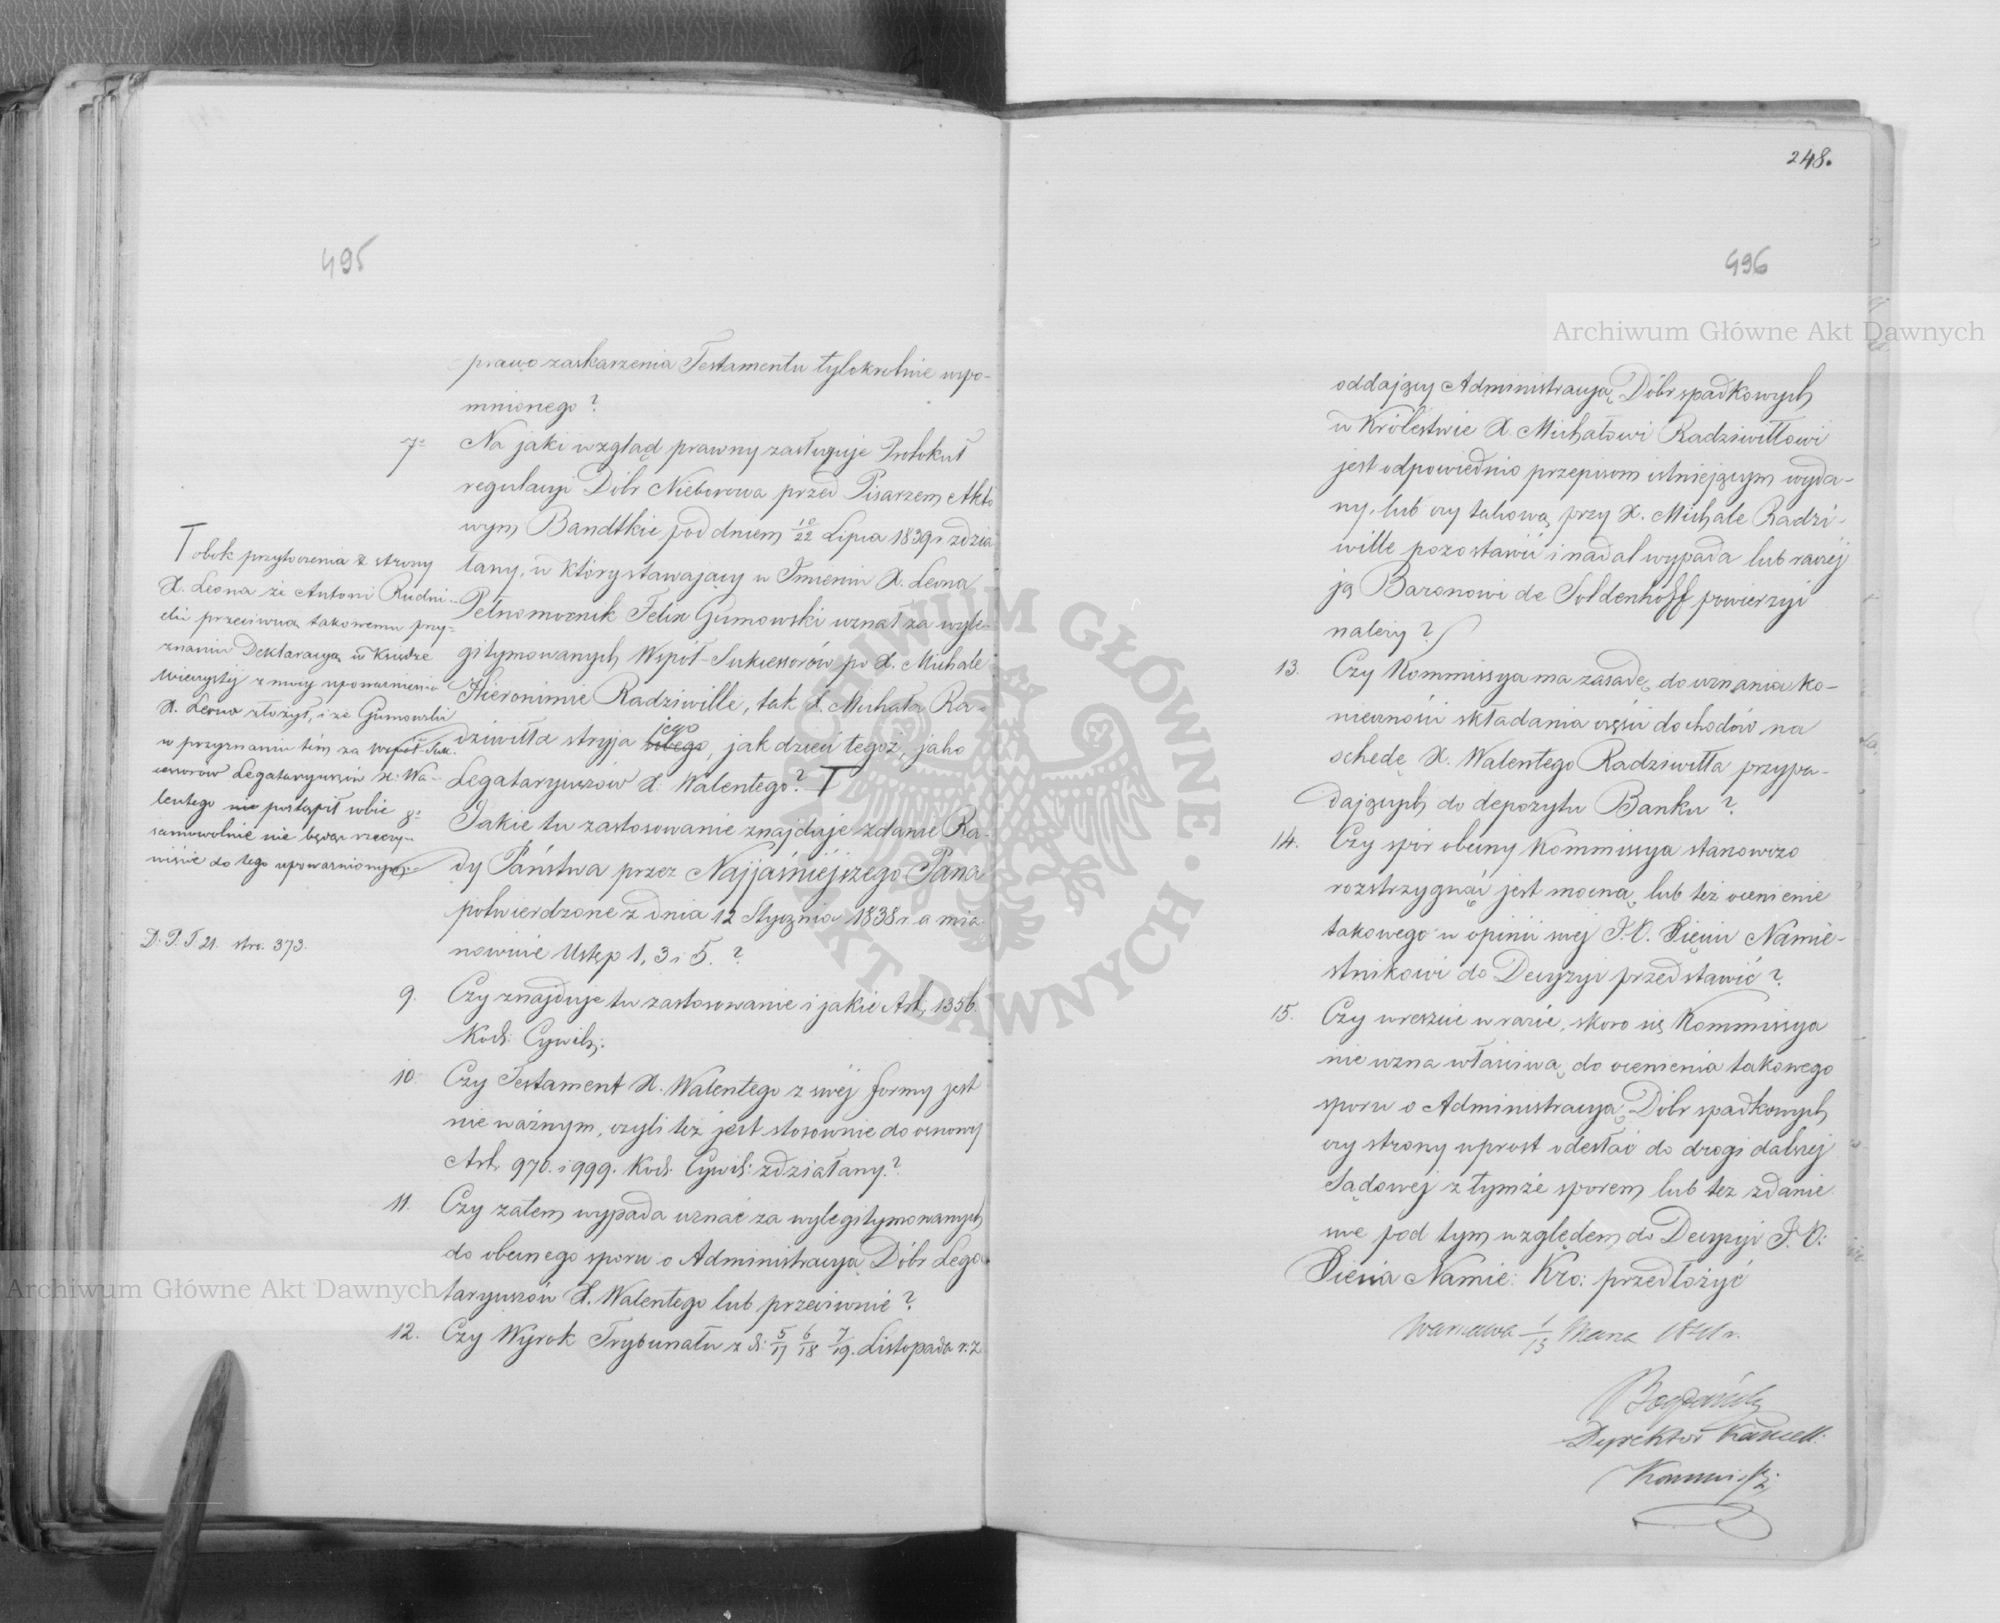 495
prawo zaskarzenia Testamentu tylokrotnie wspo-
mnionego?
7º Na jaki wzgląd prawny zasługuje Protokuł
regulacyi Dóbr Nieborowa przed Pisarzem Akto
wym Bandtkie pod dniem 10/22 Lipca 1839 r zdzia
łany, w który stawający w Imieniu X. Leona
Pełnomocnik Felix Gumowski uznał za wyle-
gitymowanych Współ-Sukcessorów po X. Michale
Hieronimie Radziwille, tak X. Michała Ra-
dziwiłła stryja jego, jak dzieci tegoż, jako
Legataryuszów X. Walentego? T
T obok przytoczenia z strony
X. Leona że Antoni Rudni-
cki przeciwną takowemu przy-
znaniu Deklaracyą w Kiędze
wieczystej z mocy upoważnienia
X. Leona złożył, i że Gumowski
w przyznaniu tém za Współ-Suk-
cessorów Legataryuszów X: Wa-
lentego postąpił sobie
samowolnie nie będąc rzeczy-
wiście do tego upoważnionym.
8º Jakie tu zastosowanie znajduje zdanie Ra-
dy Państwa przez Najjaśniejszego Pana
potwierdzone z dnia 12 Stycznia 1838 r. a mia
nowicie Ustęp 1, 3 i 5. ?
D: P. T. 21. str. 373.
9. Czy znajduje tu zastosowanie i jakie Art: 1356.
Kod: Cywil:
10. Czy Testament X. Walentego z swéj formy jest
nie ważnym, czyli też jest stosownie do osnowy
Art. 970. i 999. Kod: Cywil: zdziałany?
11. Czy zatem wypada uznać za wylegitymowanych
do obecnego sporu o Administracyą Dóbr Lega
taryuszów X. Walentego lub przeciwnie?
12. Czy Wyrok Trybunału z d: 5/17 6/18 7/19. Listopada r. z
248.
496
oddający Administracyą Dóbr spadkowych
w Królestwie X. Michałowi Radziwiłłowi
jest odpowiednio przepisom istniejącym wyda-
ny, lub czy takową przy X. Michale Radzi-
wille pozostawić i nadal wypada lub raczéj
ją Baronowi de Soldenhoff powierzyć
należy?
13. Czy Kommissya ma zasadę do uznania ko-
nieczności składania części dochodów na
schedę X. Walentego Radziwiłła przypa-
dających do depozytu Banku?
14. Czy spór obecny Kommissya stanowczo
rozstrzygnąć jest mocną, lub też ocenienie
takowego w opinii swéj J. O. Xięciu Namie-
stnikowi do Decyzyi przedstawić?
15. Czy wreszcie w razie, skoro się Kommissya
nie uzna właściwą do ocenienia takowego
sporu o Administracyą Dóbr spadkowych
czy strony wprost odesłać do drogi dalszéj
Sądowej z tymże sporem lub też zdanie
swe pod tym względem do Decyzyi J. O:
Xięcia Namie: Kró: przedłożyć
Warszawa 1/13 Marca 1841 r.
Dyrektor Kancell:
Kommissyi
Archiwum Główne Akt Dawnych
Archiwum Główne Akt Dawnych
ARCHIWUM GŁÓWNE AKT DAWNYCH